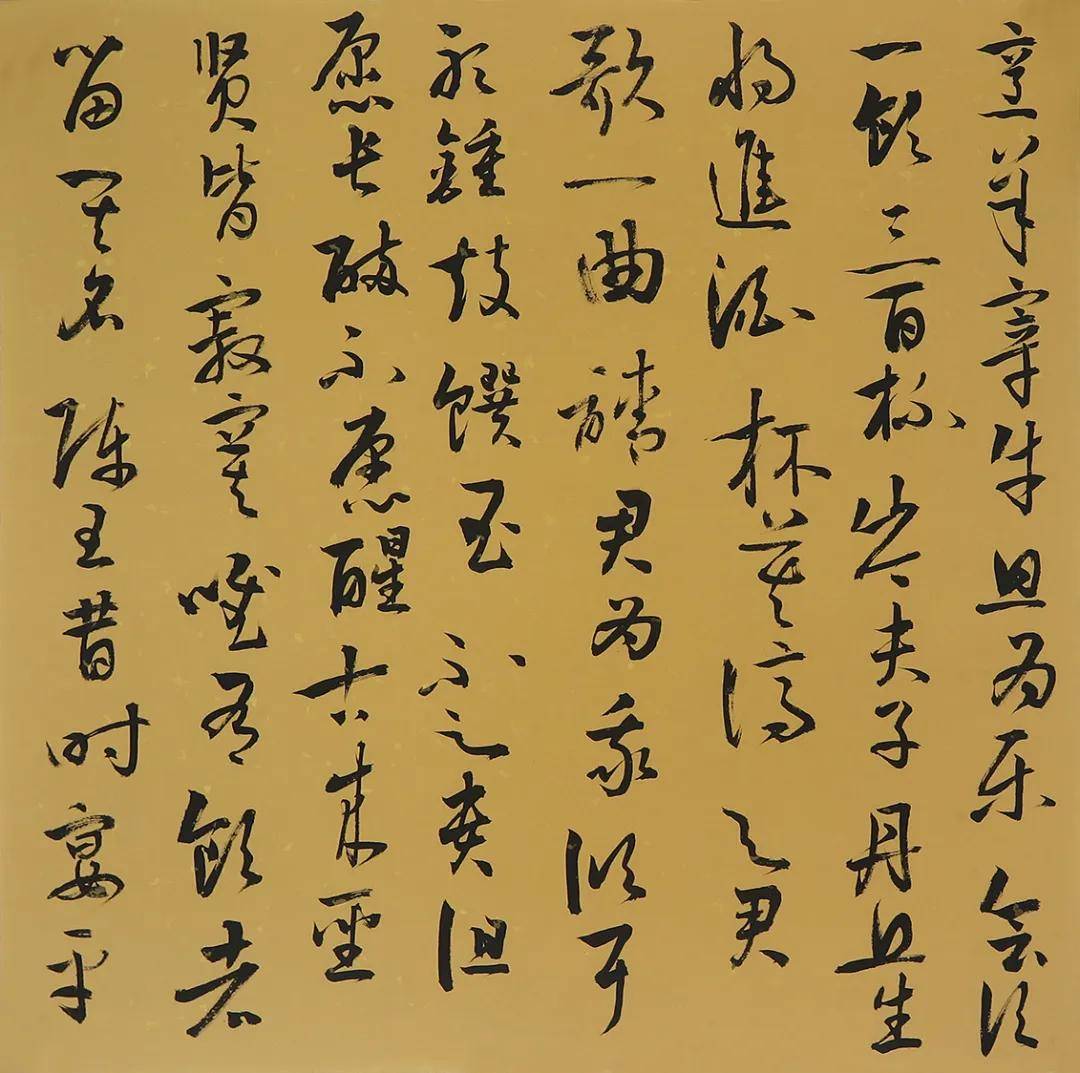 烹羊宰牛且为乐会须
一饮三百杯岑夫子丹丘生
将進酒杯莫停与君
歌一曲请君为我倾耳
听鍾鼓饌玉不足贵但
愿长醉不愿醒古来聖
贤皆寂寞唯有饮者
留其名陈王昔时宴平